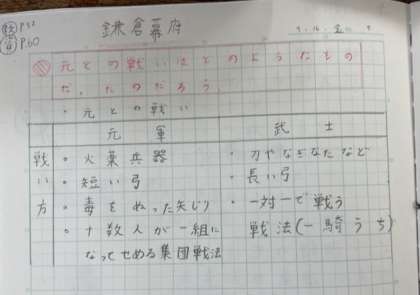 P52
P60
鎌倉幕府
元との戦いはどのようなもの
だったのだろう。
・元との戦い
元軍 武士
戦い方
・火薬兵器 ・刀やなぎなたなど
・短い弓 ・長い弓
・毒をぬった矢じり ・一対一で戦う
・十数人が一組に 戦法(一騎うち)
なってせめる集団戦法